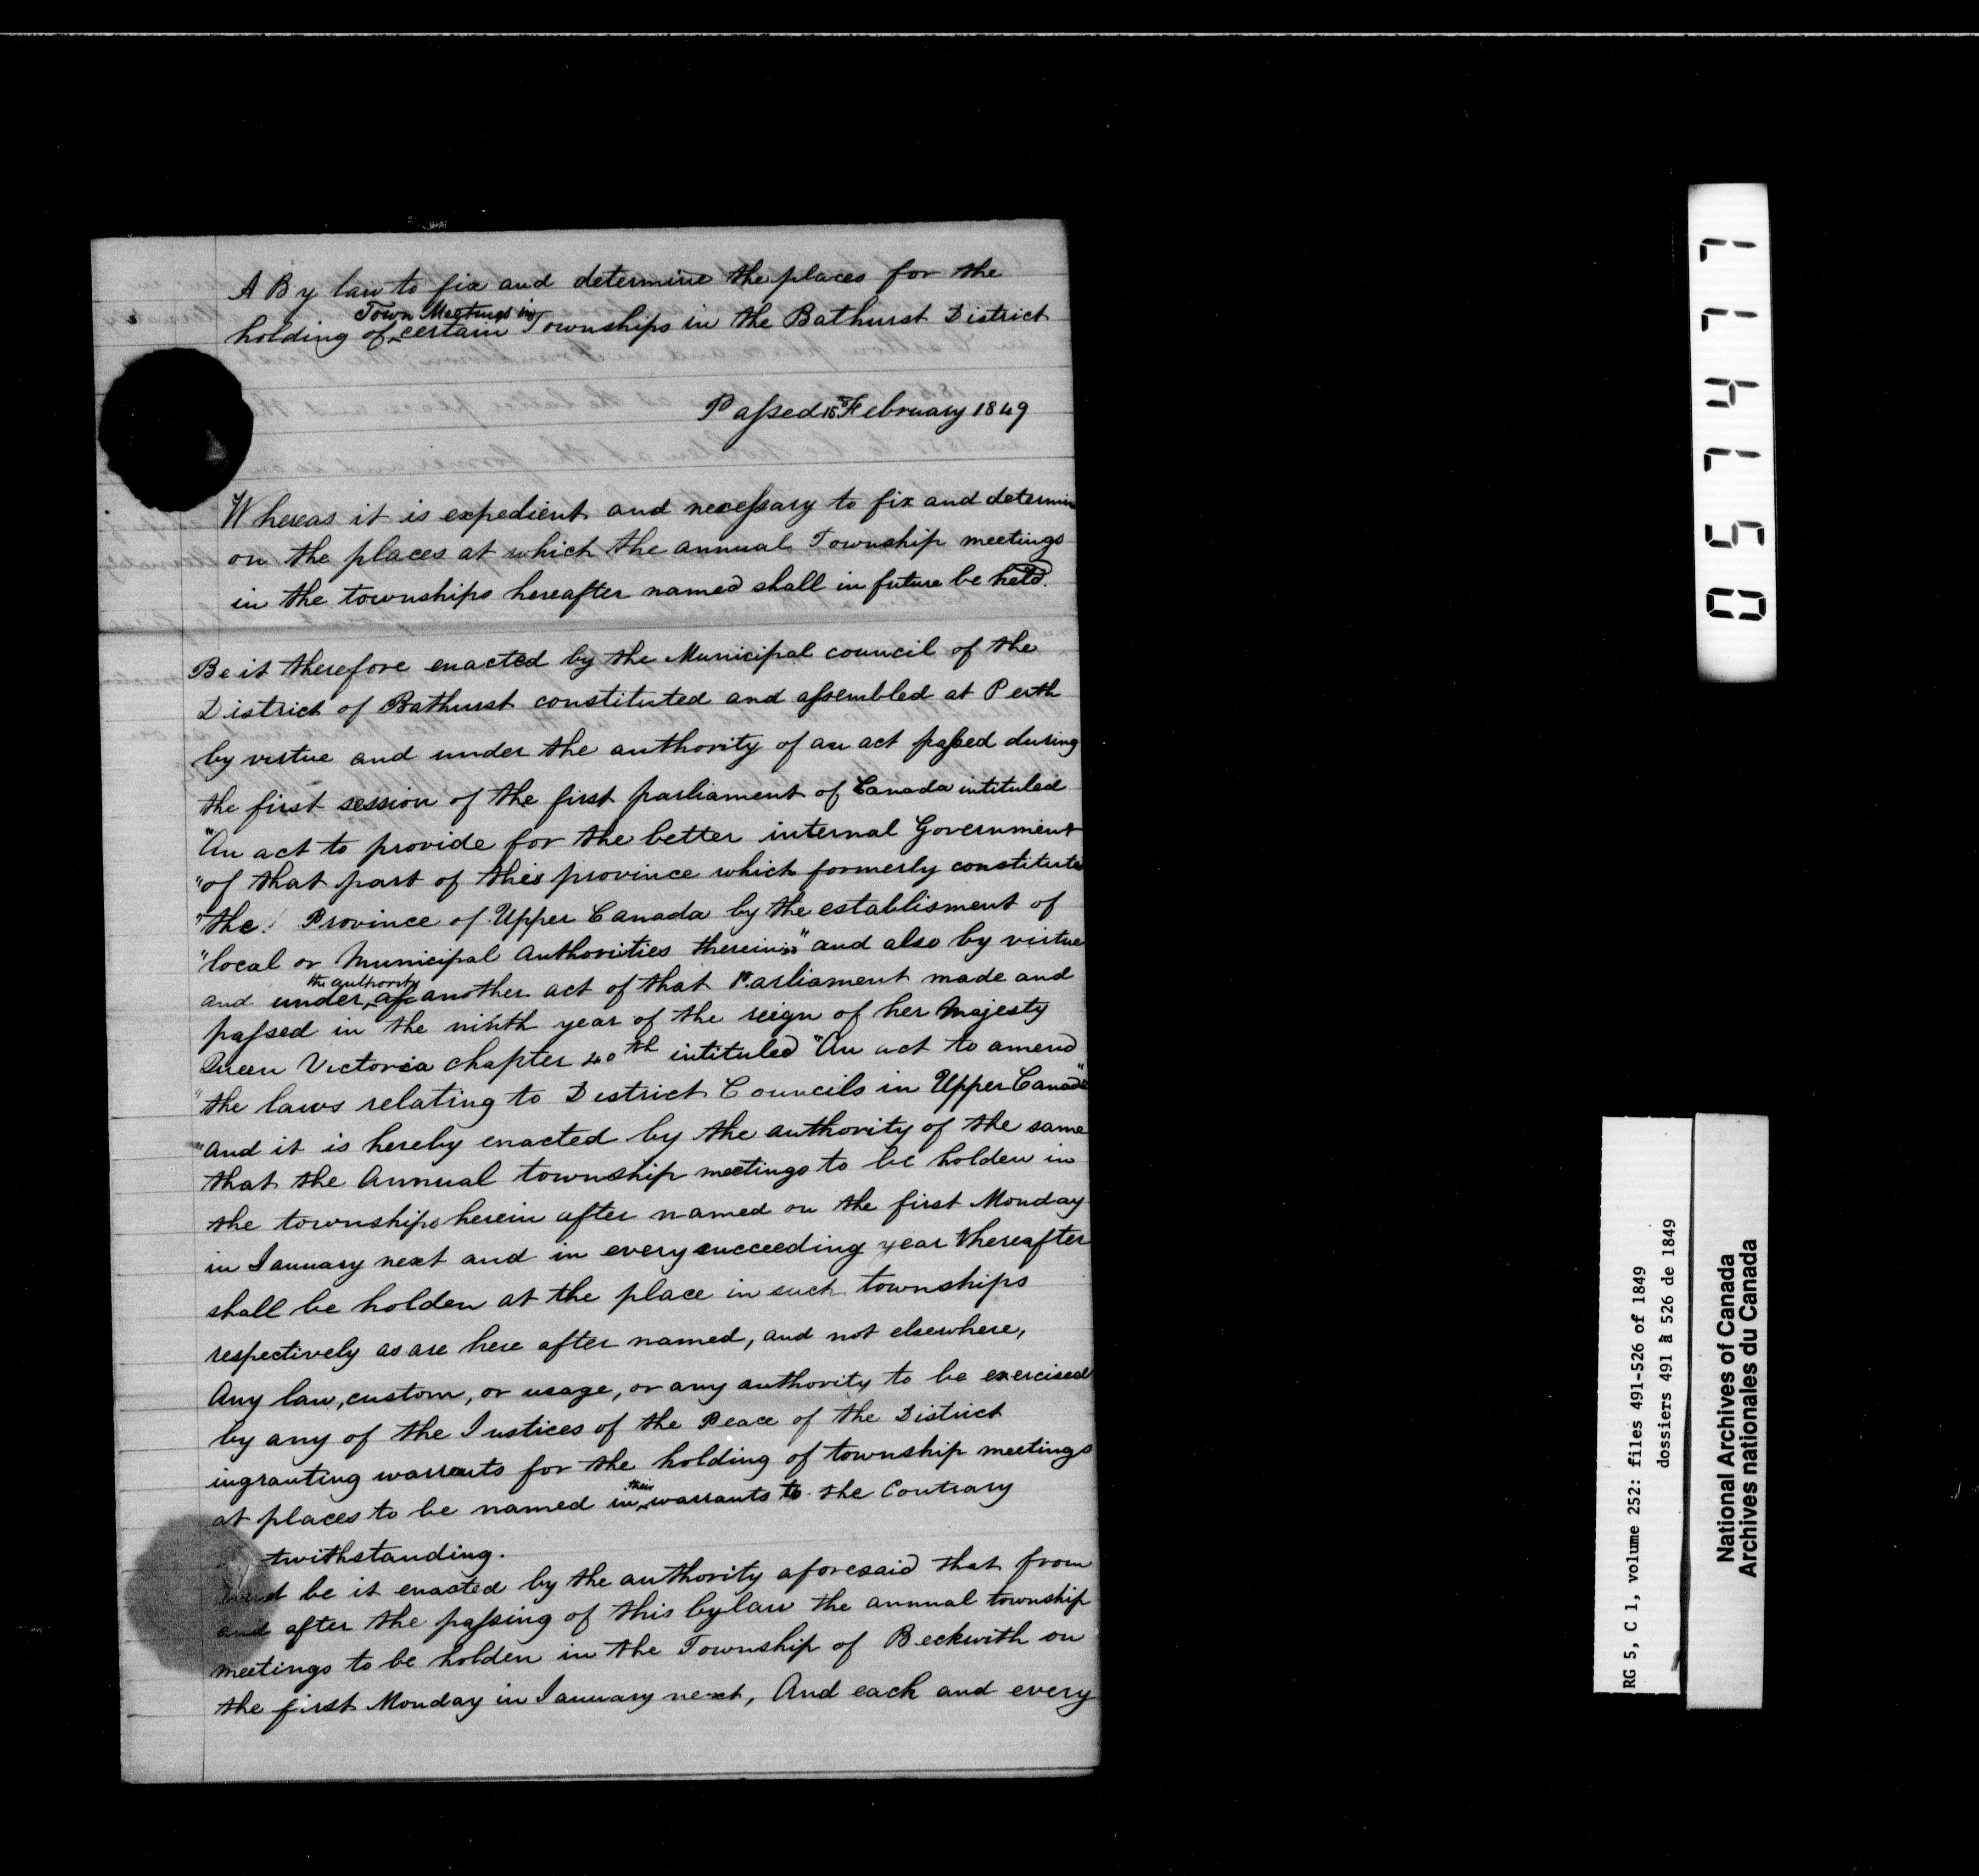 A By law to fix and determine the places for the
holding of Town Meetings in certain Townships in the Bathurst District
Passed 15th February 1849
Whereas it is expedient and necessary to fix and determin
on the places at which the annual Township meetings
in the townships hereafter named shall in future be held.
Be it therefore enacted by the Municipal council of the
District of Bathurst constituted and assembled at Perth
by virtue and under the authority of an act passed during
the first session of the first parliament of Canada intituled
"An act to provide for the better internal Government
"of that part of this province which formerly constitute
"the Province of Upper Canada by the establisment of
"local or Municipal Authorities therein" and also by virtue
and under the authority of another act of that Parliament made and
passed in the ninth year of the reign of her Majesty
Queen Victoria chapter 40th intituled "An act to amend
"the laws relating to District Councils in Upper Canada"
"And it is hereby enacted by the authority of the same
that the Annual township meetings to be holden in
the townships herein after named on the first Monday
in January next and in every succeeding year thereafter
shall be holden at the place in such townships
respectively as are here after named, and not elsewhere,
Any law, custom, or usage, or any authority to be exercised
by any of the Justices of the Peace of the District
in granting warrents for the holding of township meetings
at places to be named in their warrants to the Contrary
twithstanding.
And be it enacted by the authority aforesaid that from
and after the passing of this bylaw the annual township
meetings to be holden in the Township of Beckwith on
the first Monday in January next, And each and every
051471
RG 5, C 1, volume 252: files 491-526 of 1849
dossiers 491 à 526 de 1849
National Archives of Canada
Archives nationales du Canada